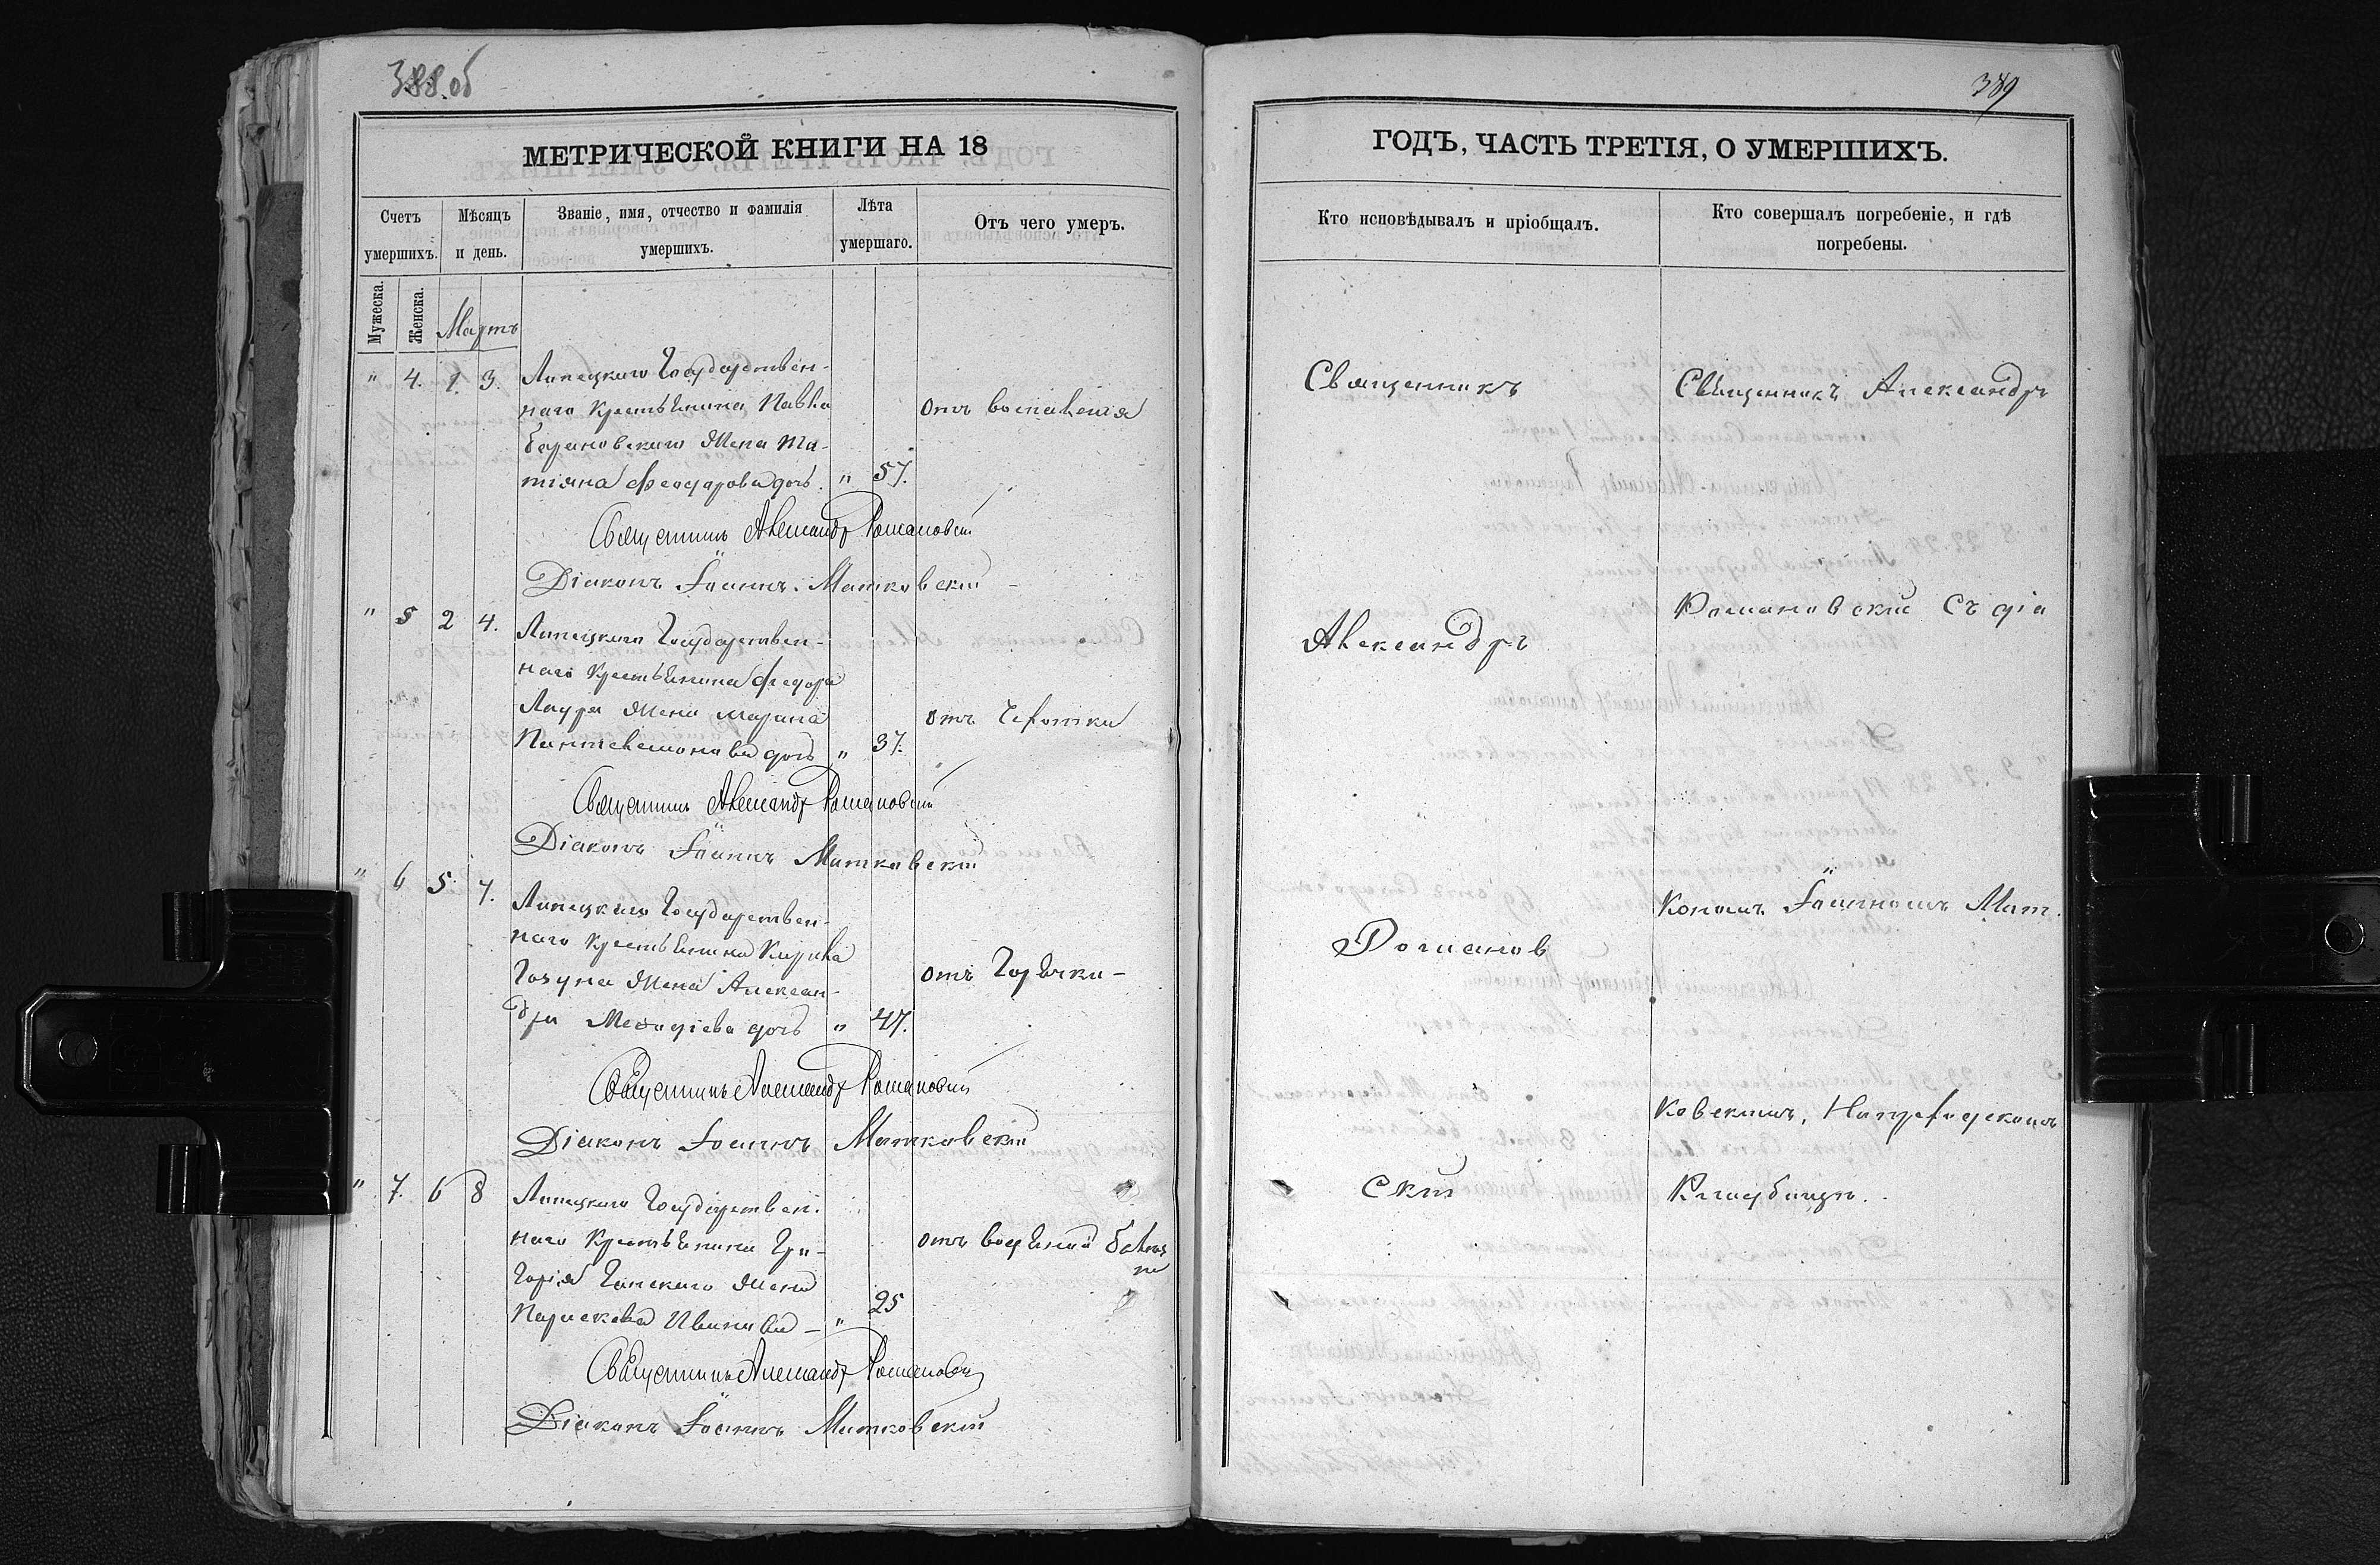 388.об
МЕТРИЧЕСКОЙ КНИГИ НА 18
Счетъ умершихъ.
Мѣсяцъ и день.
Званіе, имя, отчество и фамилія умершихъ.
Лѣта умершаго.
Отъ чего умеръ.
Мужеска.
Женска.
Мартъ
" 4. 1. 3. Липецкаго Государствен-
наго Крестьянина Павла
Барановскаго Жена Та-
тіяна Феодорова дочь. " 57.
отъ воспаленія
Священникъ Александръ Романовскій
Діаконъ Іоаннъ Матковскій
" 5 2 4. Липецкаго Государствен-
наго Крестьянина Феодора
Лаура Жена Марина
Пантелеимонова дочь " 37.
отъ Чахотки
Священникъ Александръ Романовскій
Діаконъ Іоаннъ Матковскій
" 6 5. 7. Липецкаго Государствен-
наго Крестьянина Кирила
Гозуна Жена Алексан-
дра Меѳодіева дочь " 47.
отъ Горячки-
Священникъ Александръ Романовскій
Діаконъ Іоаннъ Матковскій
" 7. 6 8 Липецкаго Государствен-
наго Крестьянина Гри-
горія Ганскаго Жена
Параскева Иванова - " 25
отъ водяной
Священникъ Александръ Романовскій
Діаконъ Іоаннъ Матковскій
389
ГОДЪ, ЧАСТЬ ТРЕТІЯ, О УМЕРШИХЪ.
Кто исповѣдывалъ и пріобщалъ.
Кто совершалъ погребеніе, и гдѣ погребены.
Священникъ
Александръ
Романов
скій
Священникъ Александръ
Романовскій съ діа
кономъ Іоанномъ Мат.
ковскимъ, На приходскомъ
Кладбищѣ.